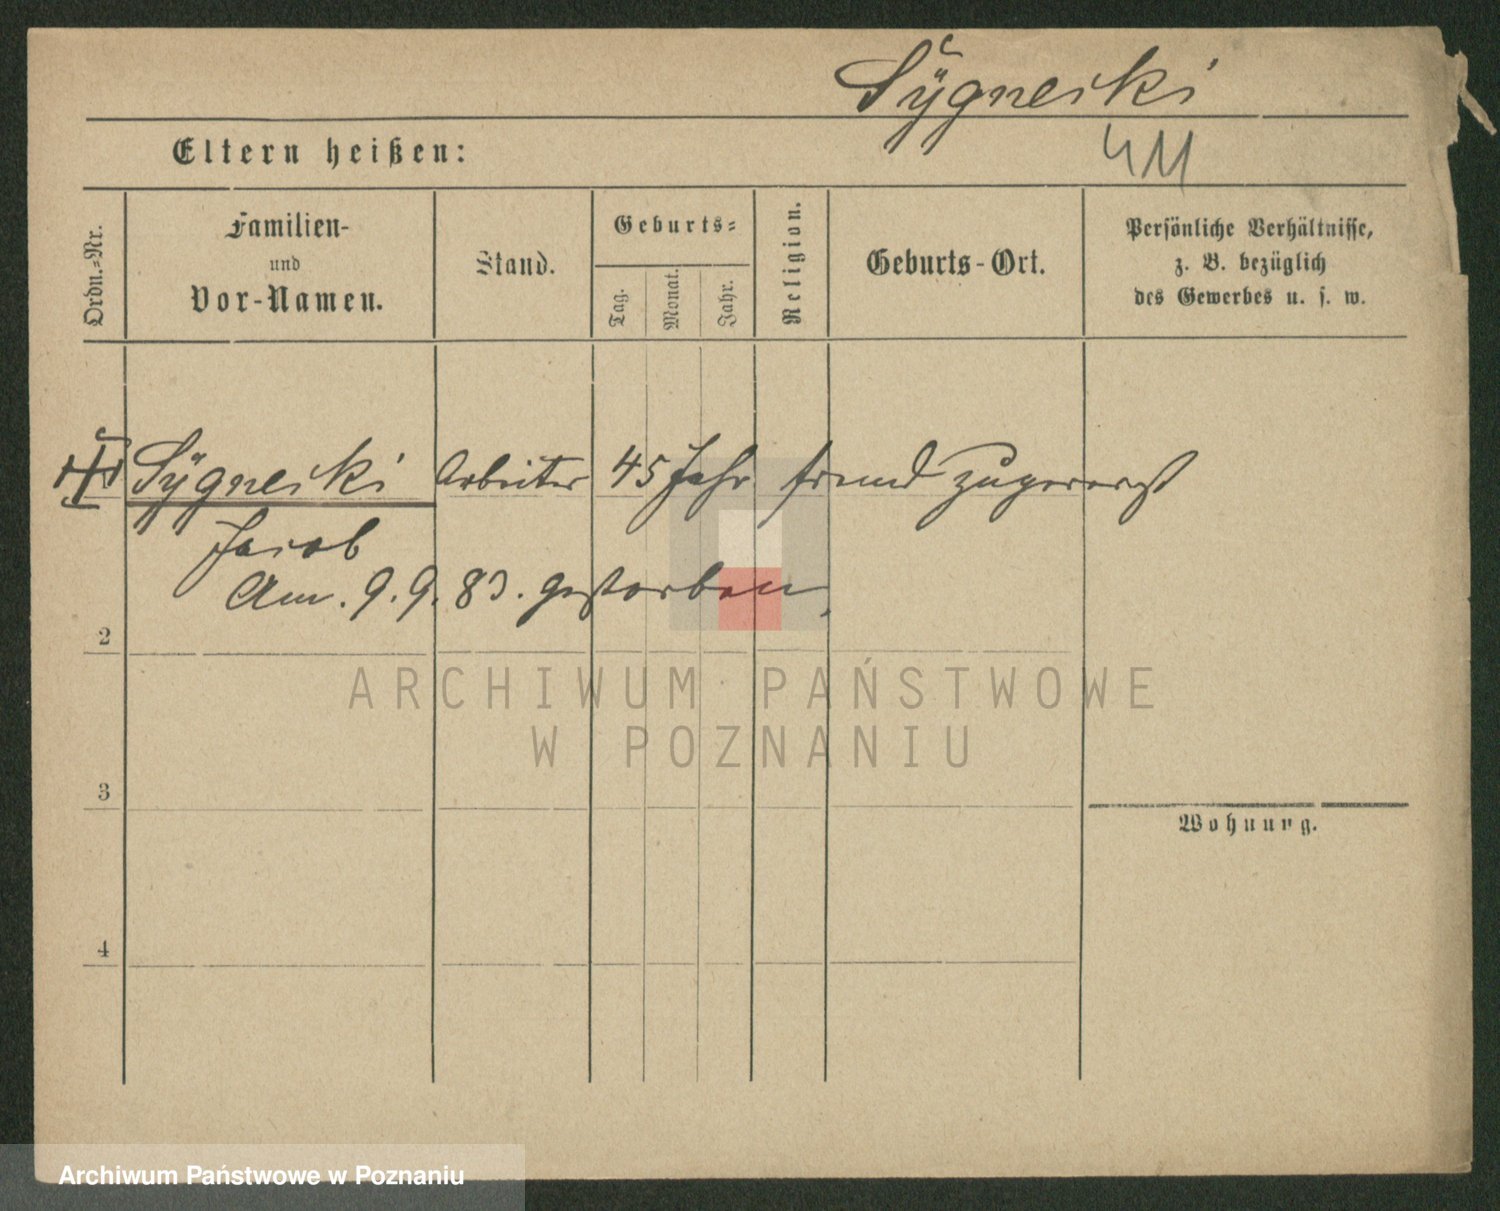 Sÿgnecki
411
Eltern heißen:
Ordn.-Nr.
Familien-
und
Vor-Namen.
Stand.
Geburts-
Tag.
Monat.
Jahr.
Religion.
Geburts-Ort.
Persönliche Verhältnisse,
z. B. bezüglich
des Gewerbes u. s. w.
Sÿgnecki Arbeiter 45 Jahr fremd zugereist
Jacob
Am. 9. 9. 83. gestorben,
2
ARCHIWUM PAŃSTWOWE
W POZNANIU
3
Wohnung.
4
Archiwum Państwowe w Poznaniu